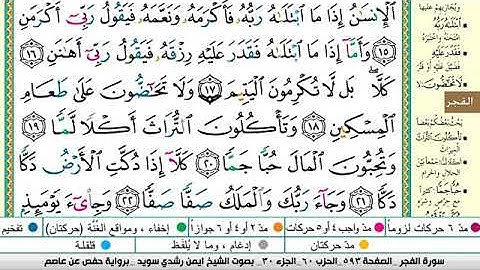 ٱلْإِنسَٰنُ إِذَا مَا ٱبْتَلَىٰهُ رَبُّهُۥ فَأَكْرَمَهُۥ وَنَعَّمَهُۥ فَيَقُولُ رَبِّىٓ أَكْرَمَنِ
١٥ وَأَمَّآ إِذَا مَا ٱبْتَلَىٰهُ فَقَدَرَ عَلَيْهِ رِزْقَهُۥ فَيَقُولُ رَبِّىٓ أَهَٰنَنِ ١٦
كَلَّا ۖ بَل لَّا تُكْرِمُونَ ٱلْيَتِيمَ ١٧ وَلَا تَحَٰٓضُّونَ عَلَىٰ طَعَامِ
ٱلْمِسْكِينِ ١٨ وَتَأْكُلُونَ ٱلتُّرَاثَ أَكْلًا لَّمًّا ١٩
وَتُحِبُّونَ ٱلْمَالَ حُبًّا جَمًّا ٢٠ كَلَّآ إِذَا دُكَّتِ ٱلْأَرْضُ دَكًّا
دَكًّا ٢١ وَجَآءَ رَبُّكَ وَٱلْمَلَكُ صَفًّا صَفًّا ٢٢ وَجِا۟ىٓءَ يَوْمَئِذٍۭ
ٱبْتَلَىٰهُ رَبُّهُ
فَقَدَرَ عَلَيْهِ
لَا تَحَٰٓضُّونَ
الفجر
مدّ ٦ حركات لزوماً
مدّ واجب ٤ أو ٥ حركات
مدّ ٢ أو ٤ أو ٦ جوازاً
إخفاء ، ومواقع الغُنَّة (حركتان)
تفخيم
مدّ حركتان
إدغام ، وما لا يُلفَظ
قلقلة
سورة الفجر_ الصفحة ٥٩٣_الحزب ٦٠_الجزء ٣٠_ بصوت الشيخ ايمن رشدي سويد_ برواية حفص عن عاصم